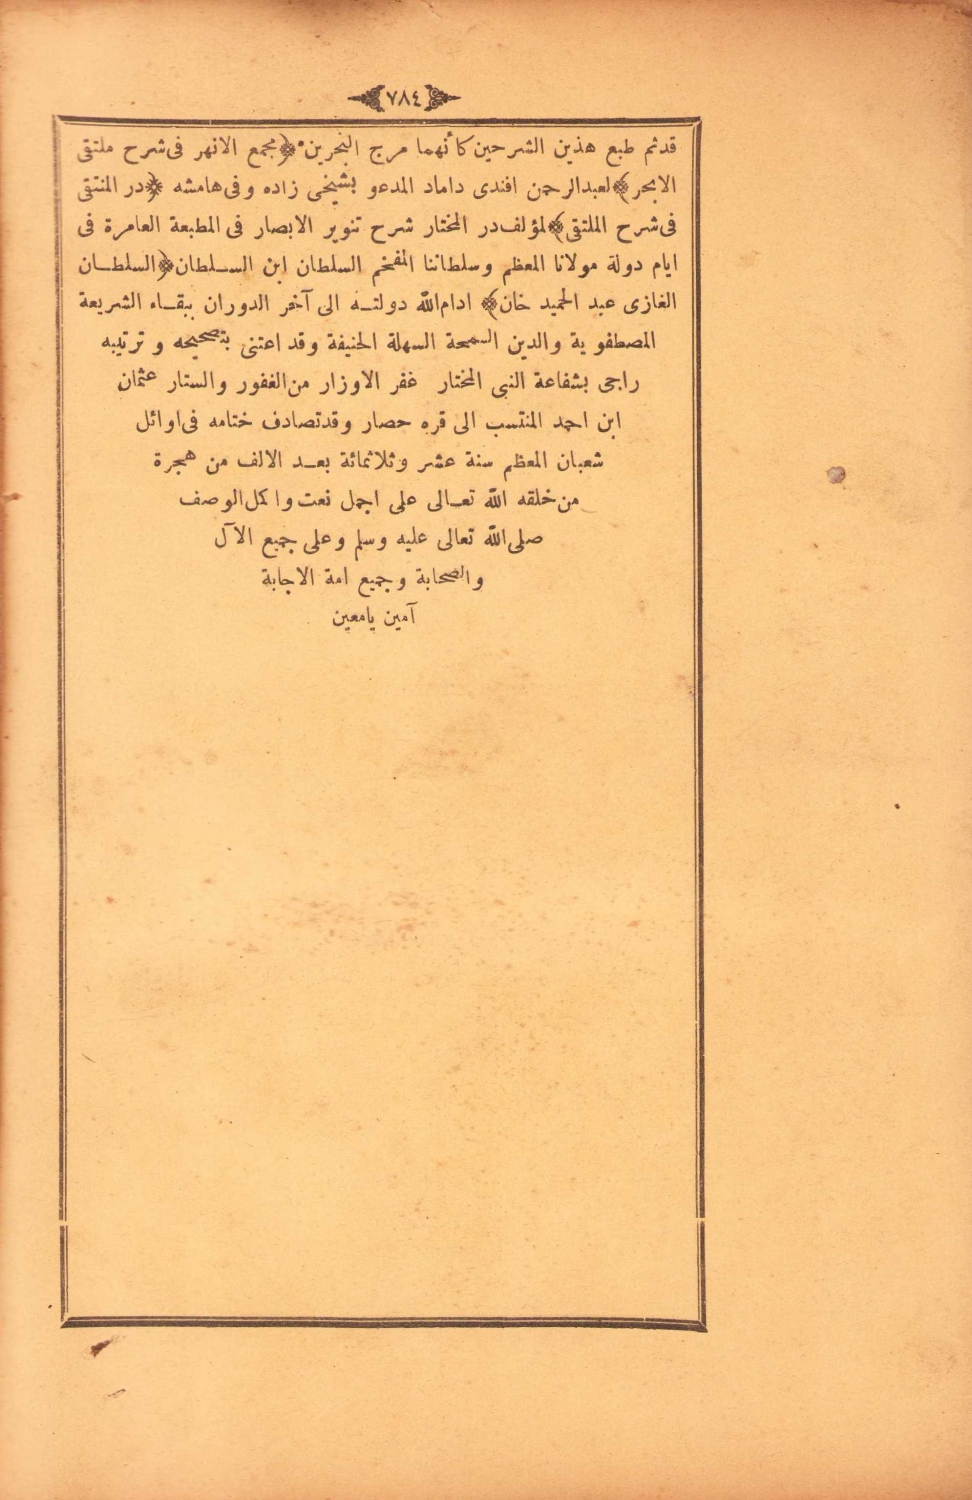 ٧٨٤
قدتم طبع هذين الشرحين كأنهما مرج البحرين ﴿مجمع الانهر فى شرح ملتقى
الابحر﴾ لعبدالرحمن افندى داماد المدعو بشيخى زاده وفى هامشه ﴿در المنتقى
فى شرح الملتقى﴾ لمؤلف در المختار شرح تنوير الابصار فى المطبعة العامرة فى
ايام دولة مولانا المعظم وسلطاننا المفخم السلطان ابن السـلطان ﴿السلطـان
الغازى عبد الحميد خان﴾ ادام الله دولتـه الى آخر الدوران ببقـاء الشريعة
المصطفوية والدين السمحة السهلة الحنيفة وقد اعتنى بتصحيحه و ترتيبه
راجى بشفاعة النبى المختار غفر الاوزار من الغفور والستار عثمان
ابن احمد المنتسب الى قره حصار وقد تصادف ختامه فى اوائل
شعبان المعظم سنة عشر وثلاثمائة بعـد الالف من هجرة
من خلقه الله تعـالى على اجمل نعت واكمل الوصف
صلى الله تعالى عليه وسلم وعلى جميع الآل
والصحابة وجميع امة الاجابة
آمين يامعين